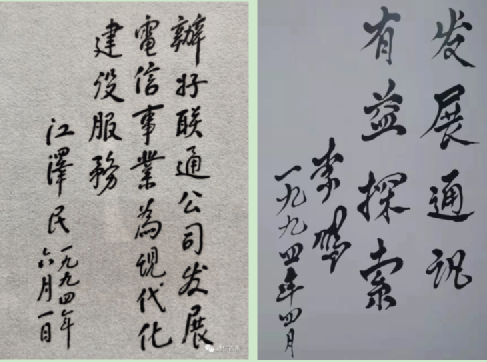 辦好联通公司发展
電信事業為现代化
建设服務
江澤民
一九九四年
六月一日
发展通訊
有益探索
李鹏
一九九四年四月